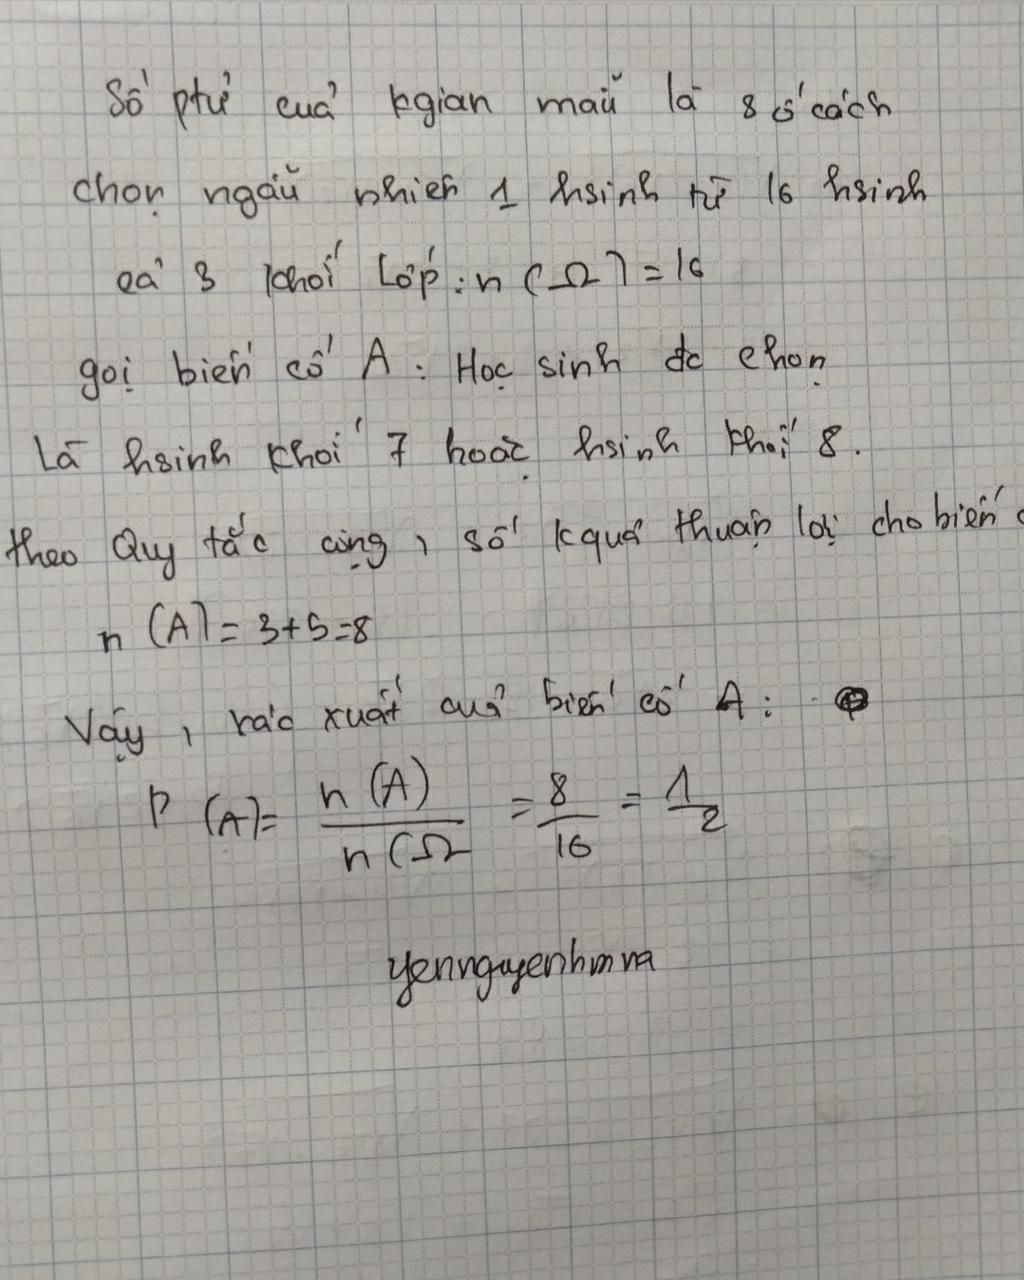 Số ptử của kgian mẫu là số cách
chọn ngẫu nhiên 1 hsinh từ 16 hsinh
cả 3 khối lớp : n (Ω) = 16
gọi biến cố A : Học sinh đc chọn
Là hsinh khối 7 hoặc hsinh khối 8.
theo Quy tắc cộng, số kquả thuận lợi cho biến c
n (A) = 3+5=8
Vậy, xác xuất của biến cố A :
P (A)= n (A) / n (Ω = 8/16 = 1/2
yennguyenhmna